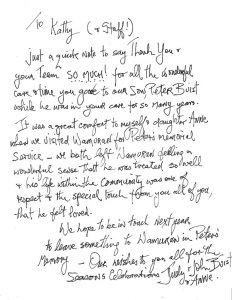 To Kathy (& Staff!)
Just a quick note to say Thank You &
your Team SO MUCH! for all the wonderful
care & time you gave to our Son Peter Buist
while he was in your care for so many years.
It was a great comfort to myself & daughter Anne
when we visited Wamuran for Peter's memorial
Service - we both left Wamuran feeling a
wonderful sense that he was treated so well
& his life within the Community was one of
respect & the special touch from you all of you
that he felt loved.
We hope to be in touch next year
to leave something to Wamuran in Peter's
Memory - Our wishes to you all for the
Season's Celebrations Judy & John Buist
& Anne.